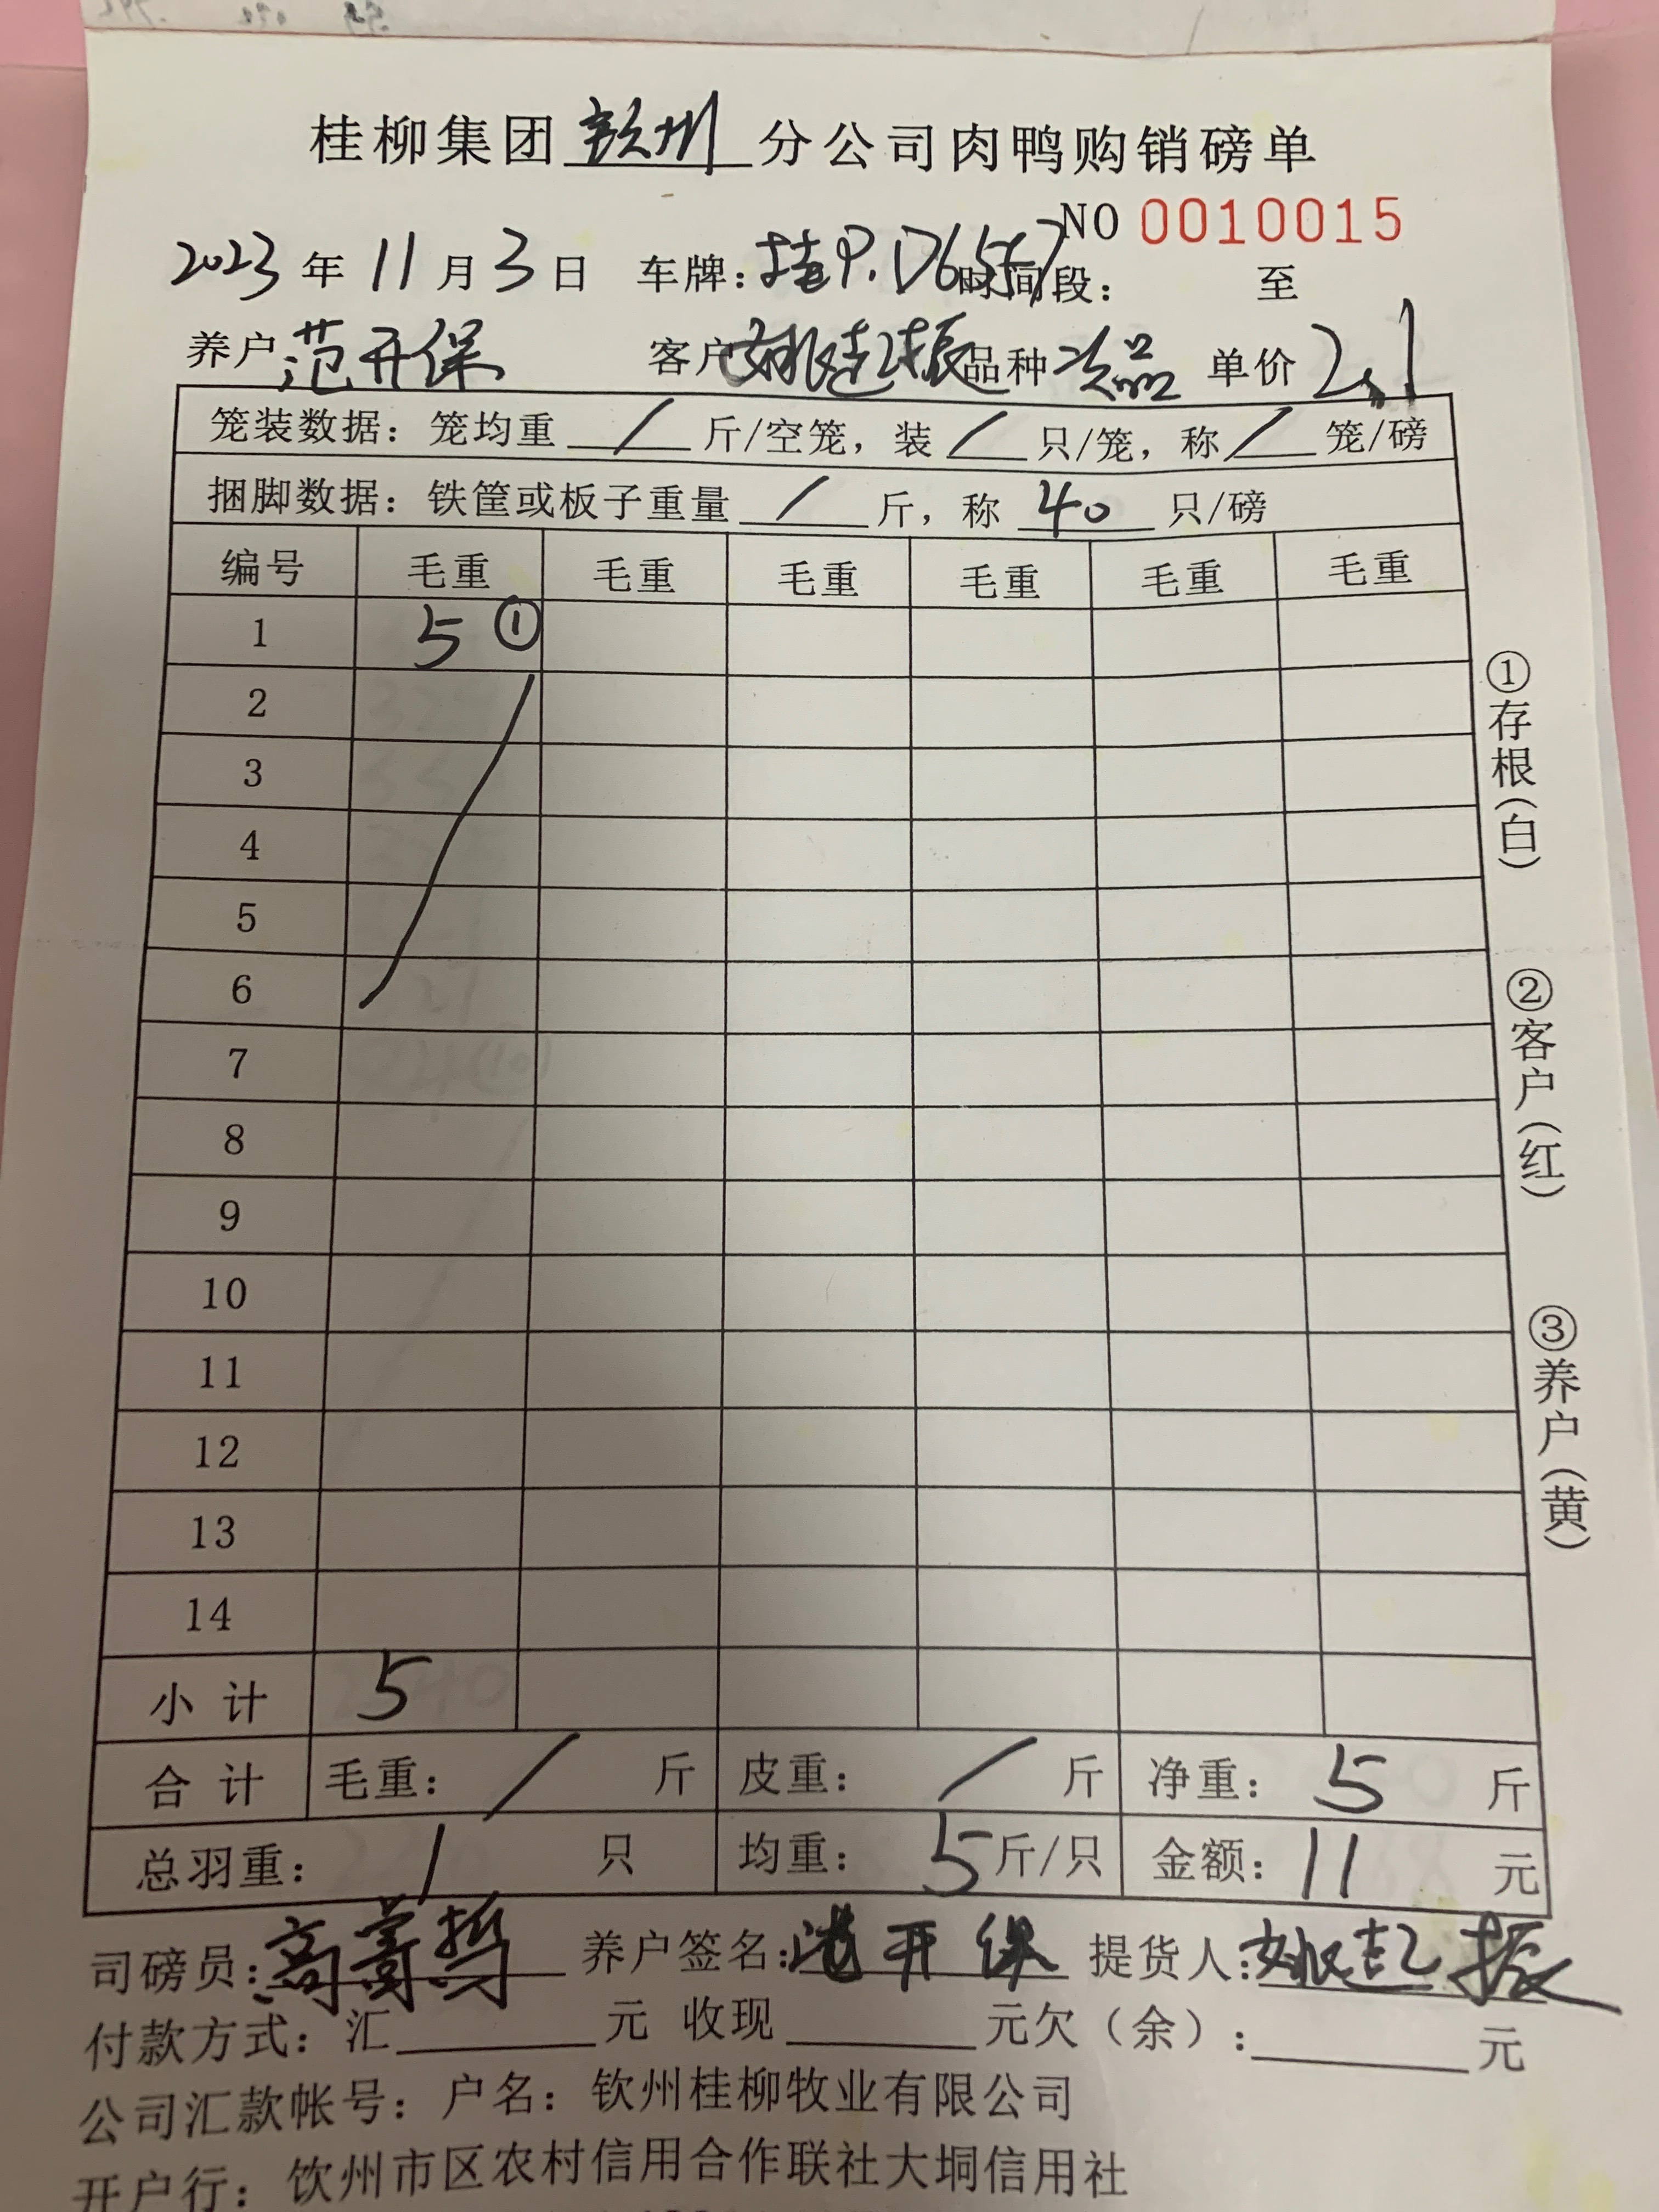 桂柳集团钦州分公司肉鸭购销磅单
NO 0010015
2023年11月3日 车牌：桂P.D6557 时间段： 至
养户范开保 客户姚起振 品种次品 单价2.1
笼装数据：笼均重/斤/空笼，装/只/笼，称/笼/磅
捆脚数据：铁筐或板子重量/斤，称40只/磅
编号 毛重 毛重 毛重 毛重 毛重 毛重
1 5 ①
2
3
4
5
6
7
8
9
10
11
12
13
14
小计 5
合计 毛重：/斤 皮重：/斤 净重：5斤
总羽重：1只 均重：5斤/只 金额：11元
司磅员：高 哲 养户签名：范开保 提货人：姚起振
付款方式：汇____元 收现____元欠（余）：____元
公司汇款帐号：户名：钦州桂柳牧业有限公司
开户行：钦州市区农村信用合作联社大垌信用社
①存根（白）
②客户（红）
③养户（黄）